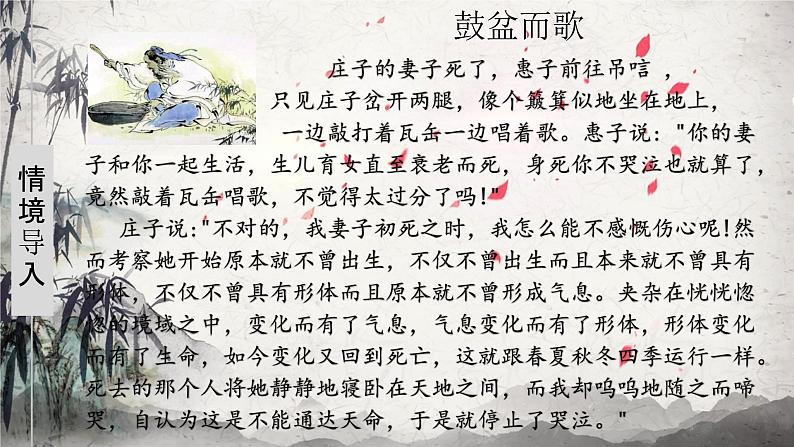 鼓盆而歌
情境导入
庄子的妻子死了，惠子前往吊唁，
只见庄子岔开两腿，像个簸箕似地坐在地上，
一边敲打着瓦缶一边唱着歌。惠子说："你的妻
子和你一起生活，生儿育女直至衰老而死，身死你不哭泣也就算了，
竟然敲着瓦缶唱歌，不觉得太过分了吗！"
庄子说："不对的，我妻子初死之时，我怎么能不感慨伤心呢！然
而考察她开始原本就不曾出生，不仅不曾出生而且本来就不曾具有
形体，不仅不曾具有形体而且原本就不曾形成气息。夹杂在恍恍惚
惚的境域之中，变化而有了气息，气息变化而有了形体，形体变化
而有了生命，如今变化又回到死亡，这就跟春夏秋冬四季运行一样。
死去的那个人将她静静地寝卧在天地之间，而我却呜呜地随之而啼
哭，自认为这是不能通达天命，于是就停止了哭泣。"